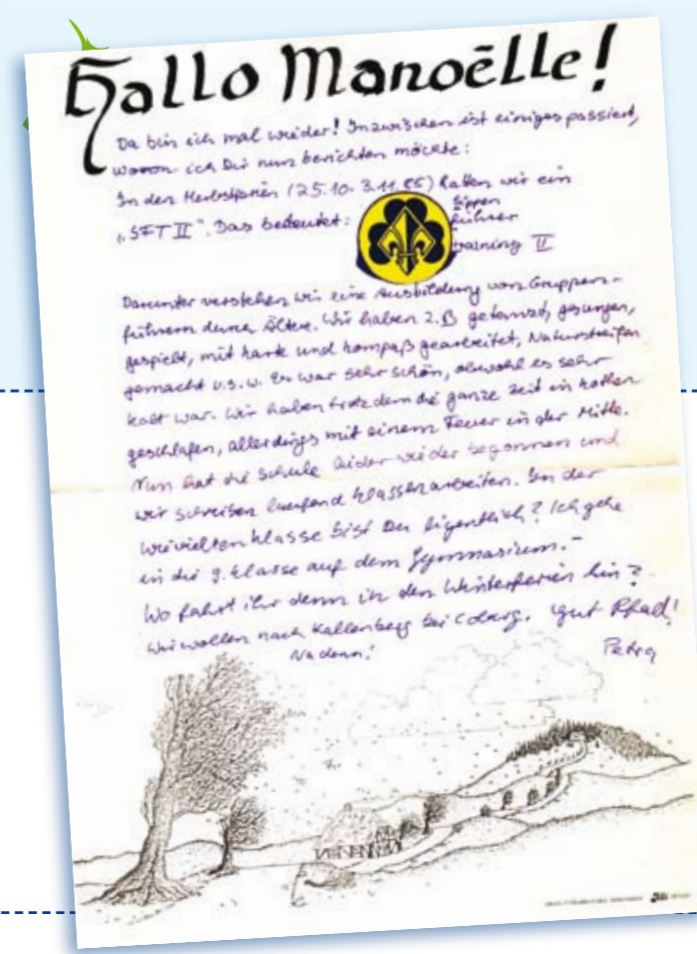 Hallo Manoëlle!
Da bin ich mal wieder! Inzwischen ist einiges passiert,
wovon ich Dir nun berichten möchte:
In den Herbstferien (25.10.-3.11.85) hatten wir ein
„SFT II“. Das bedeutet: Sippen
führer
training II
Darunter verstehen wir eine Ausbildung von Gruppen-
führern durch Ältere. Wir haben z.B getanzt, gesungen,
gespielt, mit Karte und Kompaß gearbeitet, Naturstreifen
gemacht u.s.w. Es war sehr schön, obwohl es sehr
kalt war. Wir haben trotzdem die ganze Zeit in Kothen
geschlafen, allerdings mit einem Feuer in der Mitte.
Nun hat die Schule leider wieder begonnen und
wir schreiben laufend Klassenarbeiten. In der
wievielten Klasse bist Du eigentlich? Ich gehe
in die 9. Klasse auf dem Gymnasium.-
Wo fahrt ihr denn in den Winterferien hin?
Wir wollen nach Kallenberg bei Coburg. Gut Pfad!
Na denn! Petra